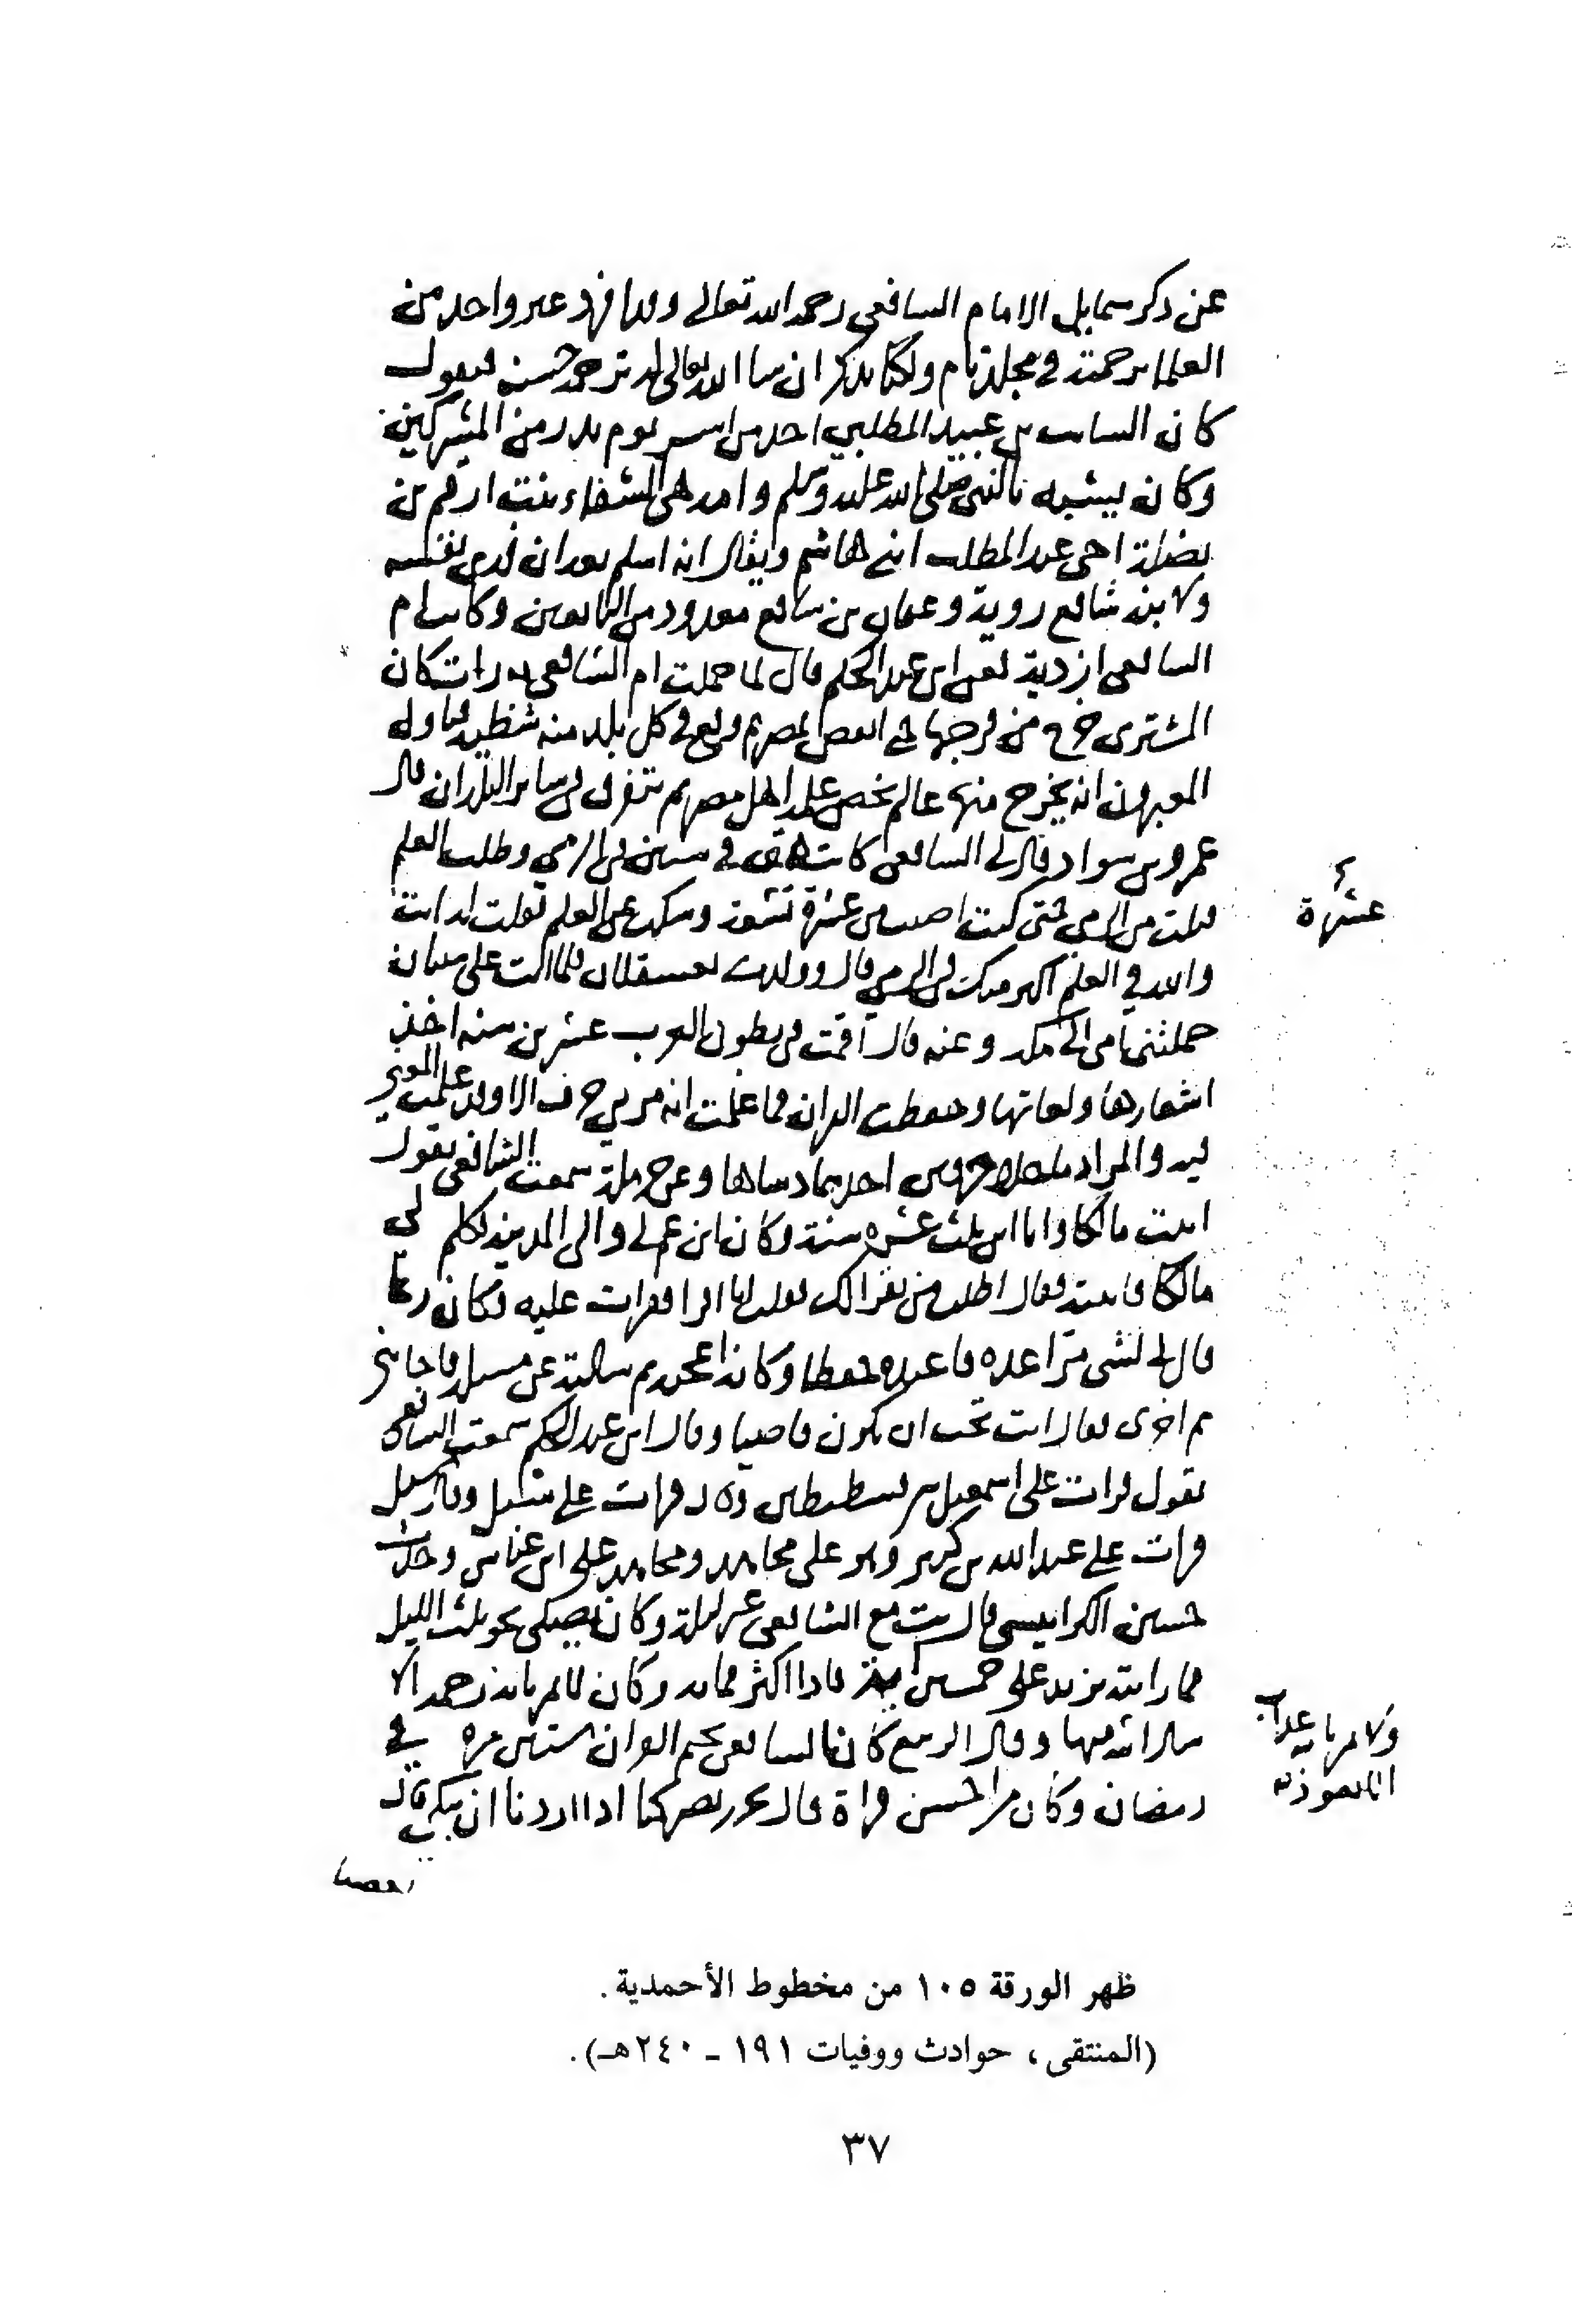 عن ذكر شمايل الامام الشافعي رحمه الله تعالى وقد افرد غير واحد من
العلما ترجمته في مجلد تام ولكنا نذكر ان شا الله تعالى له ترجمة حسنة فنقول
كان السائب بن عبيد المطلبي احد من اسر يوم بدر من المشركين
وكان يشبه بالنبي صلى الله عليه وسلم وامه هي الشفاء بنت ارقم بن
نضلة اخي عبد المطلب ابني هاشم ويقال انه اسلم بعد ان فدى نفسه
ولابنه شافع روية وعثمان بن شافع معدود من التابعين وكانت ام
الشافعي ازدية فعن ابن عبد الحكم قال لما حملت ام الشافعي به رات كان
المشتري خرج من فرجها حتى انقض بمصر ثم وقع في كل بلد منه شظية فتاوله
المعبرون انه يخرج منها عالم يخص علمه اهل مصر ثم يتفرق في سائر البلدان قال
عمرو بن سواد قال لي الشافعي كانت نهمتي في شيئين في الرمي وطلب العلم
فنلت من الرمي حتى كنت اصيب من عشرة تسعة وسكت عن العلم فقلت له انت
عشرة
والله في العلم اكبر منك في الرمي قال وولدت بعسقلان فلما اتت علي سنتان
حملتني امي الى مكة وعنه قال اقمت في بطون العرب عشرين سنة اخذ
اشعارها ولغاتها وحفظت القران فما علمت انه مر بي حرف الا وقد علمت المعنى
فيه والمراد ما خلا حرفين احدهما دساها وعن حرملة سمعت الشافعي يقول
اتيت مالكا وانا ابن ثلث عشره سنة وكان ابن عم لي والي المدينة فكلم لي
مالكا فاتيته فقال اطلب من يقرا لك فقلت انا اقرا فقرات عليه فكان ربما
قال لي لشي مر اعده فاعيده حفظا وكانه اعجبه ثم سالته عن مسيلة فاجابني
ثم اخرى فقال انت تحب ان تكون قاضيا وقال ابن عبد الحكم سمعت الشافعي
يقول قرات على اسمعيل بن قسطنطين وقال قرات على شبل وقال شبل
قرات على عبد الله بن كثير وهو على مجاهد ومجاهد على ابن عباس وحدث
حسين الكرابيسي قال بت مع الشافعي غير ليلة وكان يصلي نحو ثلث الليل
فما رايته يزيد على خمسين اية فاذا اكثر فمايه وكان لا يمر باية رحمة الا
سال الله فيها وقال الربيع كان الشافعي يختم القران ستين مرة في
ولا يمر باية عذاب
الا تعوذ
رمضان وكان من احسن قراة فقال بحر بن نصر كنا اذا اردنا ان نبكي قال
بعضنا
ظهر الورقة ١٠٥ من مخطوط الأحمدية .
(المنتقى ، حوادث ووفيات ١٩١ ـ ٢٤٠هـ) .
٣٧